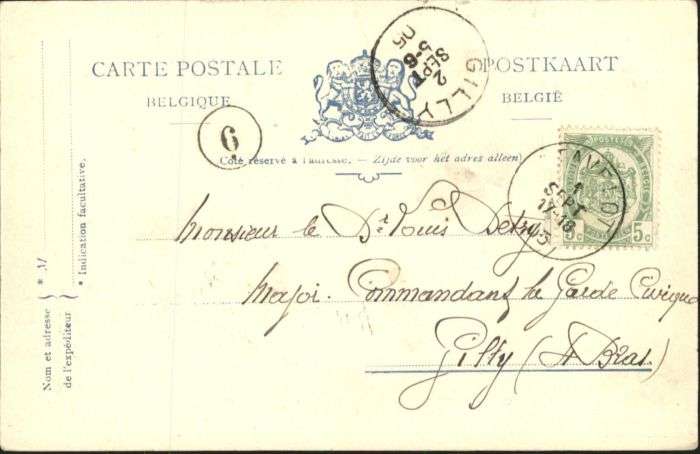 CARTE POSTALE
BELGIQUE
POSTKAART
BELGIË
GILLY
2
SEPT
5-6
05
6
Coté réservé à l'adresse. — Zijde voor het adres alleen)
1
SEPT
17-18
5c 5c
Monsieur le Dr. Louis
Major Commandant la Garde Civique
Gilly (4 Bras)
Nom et adresse
de l'expéditeur
* Indication facultative.